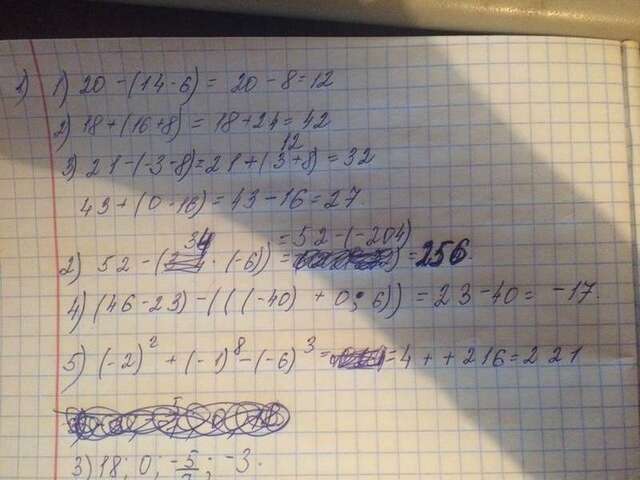 1) 1) 20 - (14 - 6) = 20 - 8 = 12
2) 18 + (16 + 8) = 18 + 24 = 42
12
3) 21 - (-3 - 8) = 21 + (3 + 8) = 32
43 + (0 - 16) = 43 - 16 = 27.
34 = 52 - (-204)
2) 52 - ( · (-6)) = = 256.
4) (46 - 23) - (((-40) + 0 : 6)) = 23 - 40 = -17.
5) (-2)² + (-1)⁸ - (-6)³ = = 4 + + 216 = 221
3) 18; 0; -5/ ; -3.